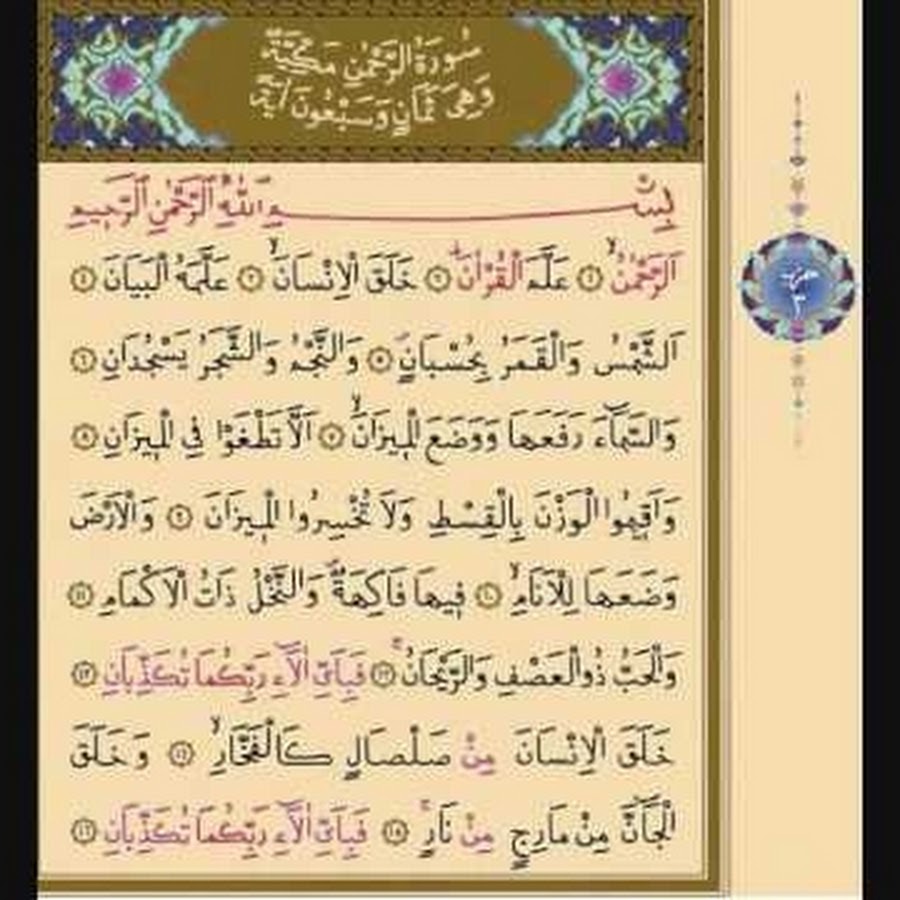 سُورَةُ الرَّحْمٰنِ مَكِّيَّةٌ
وَهِيَ ثَمَانٍ وَسَبْعُونَ اٰيَةً
بِسْمِ اللّٰهِ الرَّحْمٰنِ الرَّحِيمِ
اَلرَّحْمٰنُۙ ﴿١﴾ عَلَّمَ الْقُرْاٰنَۜ ﴿٢﴾ خَلَقَ الْاِنْسَانَۙ ﴿٣﴾ عَلَّمَهُ الْبَيَانَ ﴿٤﴾
اَلشَّمْسُ وَالْقَمَرُ بِحُسْبَانٍۖ ﴿٥﴾ وَالنَّجْمُ وَالشَّجَرُ يَسْجُدَانِ ﴿٦﴾
وَالسَّمَٓاءَ رَفَعَهَا وَوَضَعَ الْم۪يزَانَۙ ﴿٧﴾ اَلَّا تَطْغَوْا فِي الْم۪يزَانِ ﴿٨﴾
وَاَق۪يمُوا الْوَزْنَ بِالْقِسْطِ وَلَا تُخْسِرُوا الْم۪يزَانَ ﴿٩﴾ وَالْاَرْضَ
وَضَعَهَا لِلْاَنَامِۙ ﴿١٠﴾ ف۪يهَا فَاكِهَةٌۖ وَالنَّخْلُ ذَاتُ الْاَكْمَامِ ﴿١١﴾
وَالْحَبُّ ذُو الْعَصْفِ وَالرَّيْحَانُۚ ﴿١٢﴾ فَبِاَيِّ اٰلَٓاءِ رَبِّكُمَا تُكَذِّبَانِ ﴿١٣﴾
خَلَقَ الْاِنْسَانَ مِنْ صَلْصَالٍ كَالْفَخَّارِۙ ﴿١٤﴾ وَخَلَقَ
الْجَٓانَّ مِنْ مَارِجٍ مِنْ نَارٍۚ ﴿١٥﴾ فَبِاَيِّ اٰلَٓاءِ رَبِّكُمَا تُكَذِّبَانِ ﴿١٦﴾
حزب
٣